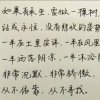 如果有来生，要做一棵树，
站成永恒，没有悲欢的姿势。
一半在土里安详，一半在风里飞扬，
一半洒落阴凉，一半沐浴阳光，
非常沉默、非常骄傲，
从不依靠、从不寻找。